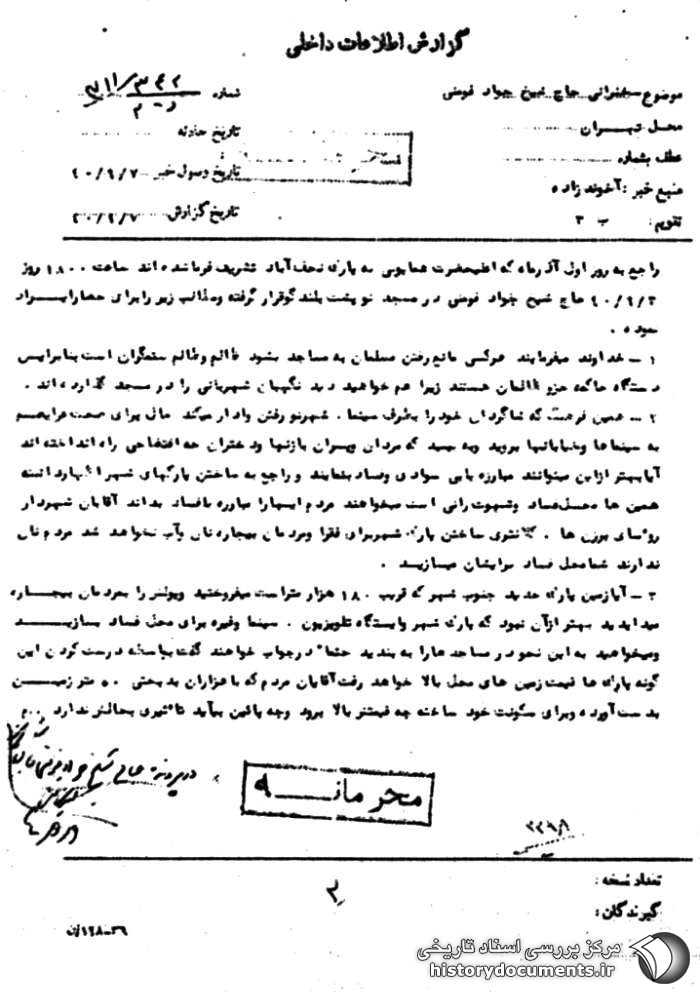 گزارش اطلاعات داخلی
موضوع سخنرانی حاج شیخ جواد فومنی
شماره ۳۴۲/۳۱۱
محل تهران
تاریخ حادثه
عطف بشماره
تاریخ وصول خبر ۴۰/۹/۷
منبع خبر : آخوند زاده
تاریخ گزارش ۴۰/۹/۷
تقویم: ب ۳
راجع به روز اول آذرماه که اعلیحضرت همایونی به پارک نجف آباد تشریف فرما شده اند ساعت ۱۸۰۰ روز
۴۰/۹/۳ حاج شیخ جواد فومنی در مسجد نو پشت بلندگو قرار گرفته ومطالب زیر را برای حضار ایراد
نموده .
۱ – خداوند میفرمایند هرکس مانع رفتن مسلمان به مساجد بشود ظالم وظالم ستمگران است بنابراین
دستگاه حاکمه جزو ظالمان هستند زیرا هم خواهید دید نگهبان شهربانی را در مسجد گذارده اند .
۲ – همین فرهنگ که شاگردان خود را بطرف سینما . شهرنو رفتن وادار میکند حال برای صحت عرایضم
به سینماها وخیابانها بروید وبه بینید که مردان وپسران بازنها ودختران چه افتضاحی راه انداخته اند
آیا بهتر ازاین میتوانند مبارزه بابی سوادی وفساد بنمایند و راجع به ساختن پارکهای شهر اظهارداشته
همین ها محل فساد وشهوت رانی است میخواهند مردم اینها را مبارزه بافساد بداند آقایان شهردار
روسای برزن ها . کلانتری ساختن پارک شهر برای فقرا ومردمان بیچاره نان وآب نخواهد شد مردم نان
ندارند شما محل فساد برایشان میسازید .
۳ – آیا زمین پارک جدید جنوب شهر که قریب ۱۸۰ هزار متر است میفروختید وپولش را بمردمان بیچاره
میدادید بهتر ازآن نبود که پارک شهر وایستگاه تلویزیون . سینما وغیره برای محل فساد بسازید
ومیخواهید به این نحو در مساجدها را به بندید حتما در جواب خواهند گفت بواسطه درست کردن این
گونه پارک ها قیمت زمین های محل بالا خواهد رفت آقایان مردم که با هزاران بدبختی ۵۰ متر زمین
بدست آورده وبرای سکونت خود ساخته چه قیمتش بالا برود وچه پائین بیاید تاثیری بحالش ندارد
در پرونده
محرمانه
تعداد نسخه :
گیرندگان :
۳۶–۱۲۸/ن
مرکز بررسی اسناد تاریخی
historydocuments.ir